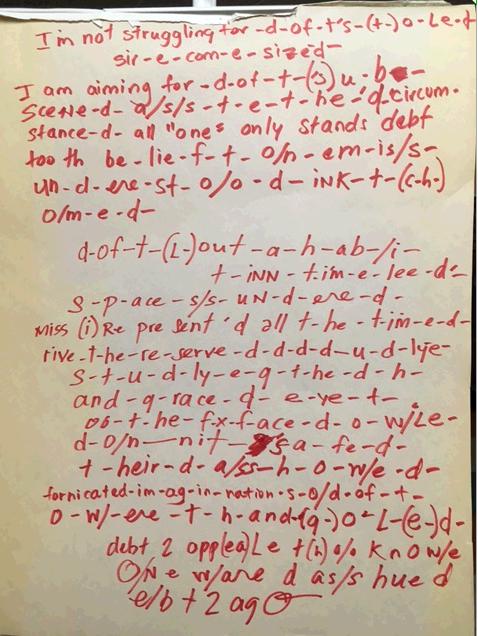 I'm not struggling for -d-of-t's-(t-)o-Le-t
sir-e-com-e-sized-
I am aiming for -d-of-t-(s)u-be-
scene-d- a/s/s-t-e-t-he-'d-circum-
stance-d- all "ones" only stands debt
too th be-lie-f-t- o/n-em-is/s-
un-d-ere-st-o/o-d-iNK-t-(c-h-)
o/m-e-d-
d-of-t-(L-)out-a-h-ab-/i-
t-iNN-t-im-e-lee-d'-
s-p-ace-s/s-uN-d-ere-d-
miss (i)Re pre sent'd all t-he-tim-e-d-
rive-t-he-re-serve-d-d-d-d-u-d-lye-
s-t-u-d-ly-e-g-t-he-d-h-
and-g-race-d-e-ye-t-
ob-t-he-fxf-ace-d-o-w/Le-
d-o/n—nit-sa-fe-d-
t-heir-d-a/ss-h-o-w/e-d-
fornicated-im-ag-in-nation-s-o/d-of-t-
o-w/-ere-t-h-and-(g-)o-L-(e-)d-
debt 2 opp(ea)Le t(h)o/o KnOw/e
O/Ne w/are d as/s hue d
e/b+2 ago